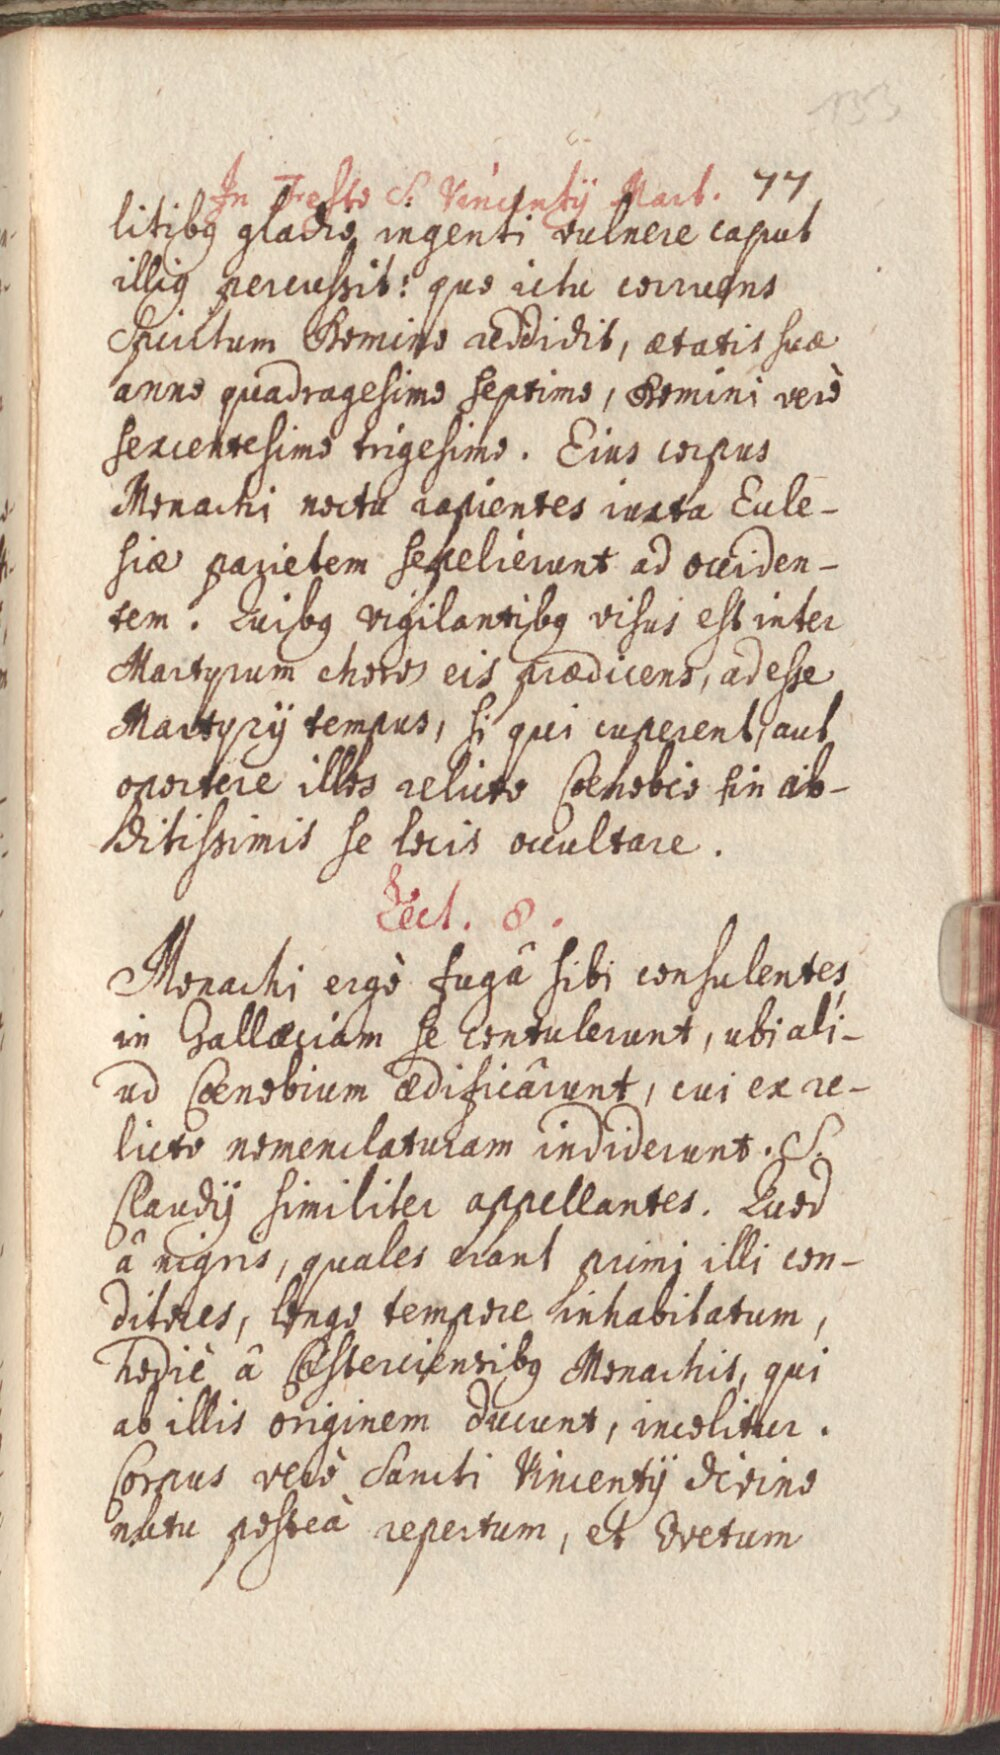 133
In Festo S. Vincentij Mart. 77
litibꝯ gladio ingenti vulnere caput
illiꝯ percussit: quo ictu corruens
Spiritum Domino reddidit, ætatis suæ
anno quadragesimo septimo, Domini verò
sexcentesimo trigesimo. Eius corpus
Monachi noctu rapientes iuxta Eccle-
siæ parietem sepelierunt ad occiden-
tem. Quibꝯ vigilantibꝯ visus est inter
Martyrum choros eis prædicens, adesse
Martyrij tempus, si qui cuperent, aut
oportere illos relicto Cœnobio in ab-
ditissimis se locis occultare.
Lect. 8.
Monachi ergò fugâ sibi consulentes,
in Gallæciam se contulerunt, ubi ali-
ud Cœnobium ædificârunt, cui ex re-
licto nomenclaturam indiderunt. S.
Claudij similiter appellantes. Quod
â nigris, quales erant primi illi con-
ditores, longo tempore inhabitatum,
hodiè â Cisterciensibꝯ Monachis, qui
ab illis originem ducunt, incolitur.
Corpus verò Sancti Vincentij divino
nutu posteà repertum, et Ovetum